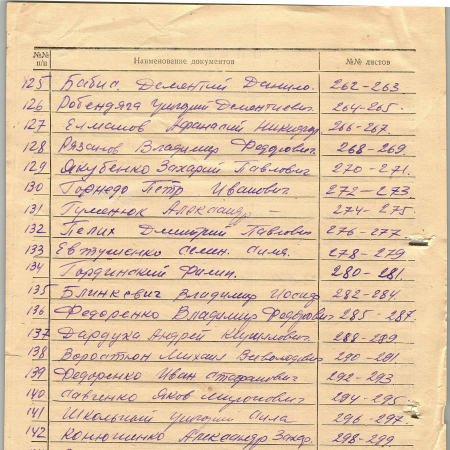 №№ п/п Наименование документов №№ листов
125 Бабич. Дементий Данило. 262-263
126 Григорий Дементиевич. 264-265.
127 Афанасий Никифор. 266-267.
128 Рязанов Владимир Федорович. 268-269.
129 Якубенко Захарий Павлович 270-271.
130 Торнедо Петр Иванович 272-273
131 Гуменюк Александр - 274-275
132 Пелих Дмитрий Павлович 276-277
133 Евтушенко Семен. 278-279
134 Гординский Филип. 280-281.
135 Блинкевич Владимир Иосиф 282-284.
136 Федоренко Владимир Федорович 285-287.
137 Дардуха Андрей 288-289
138 Михаил 290-291
139 Федоренко Иван Стафанович 292-293
140 Савченко Яков 294-295
141 Школьный Григорий Сила 296-297
142 Конюшенко Александр Захар. 298-299